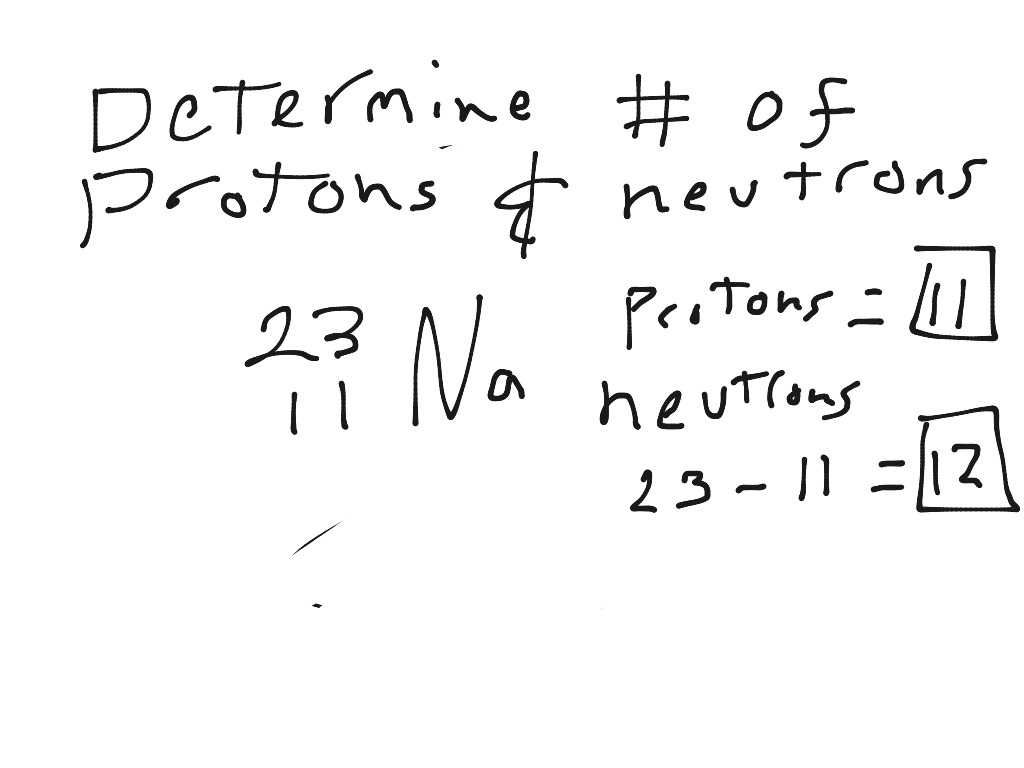 Determine # of
Protons & neutrons
23
11 Na
Protons = 11
neutrons
23 - 11 = 12